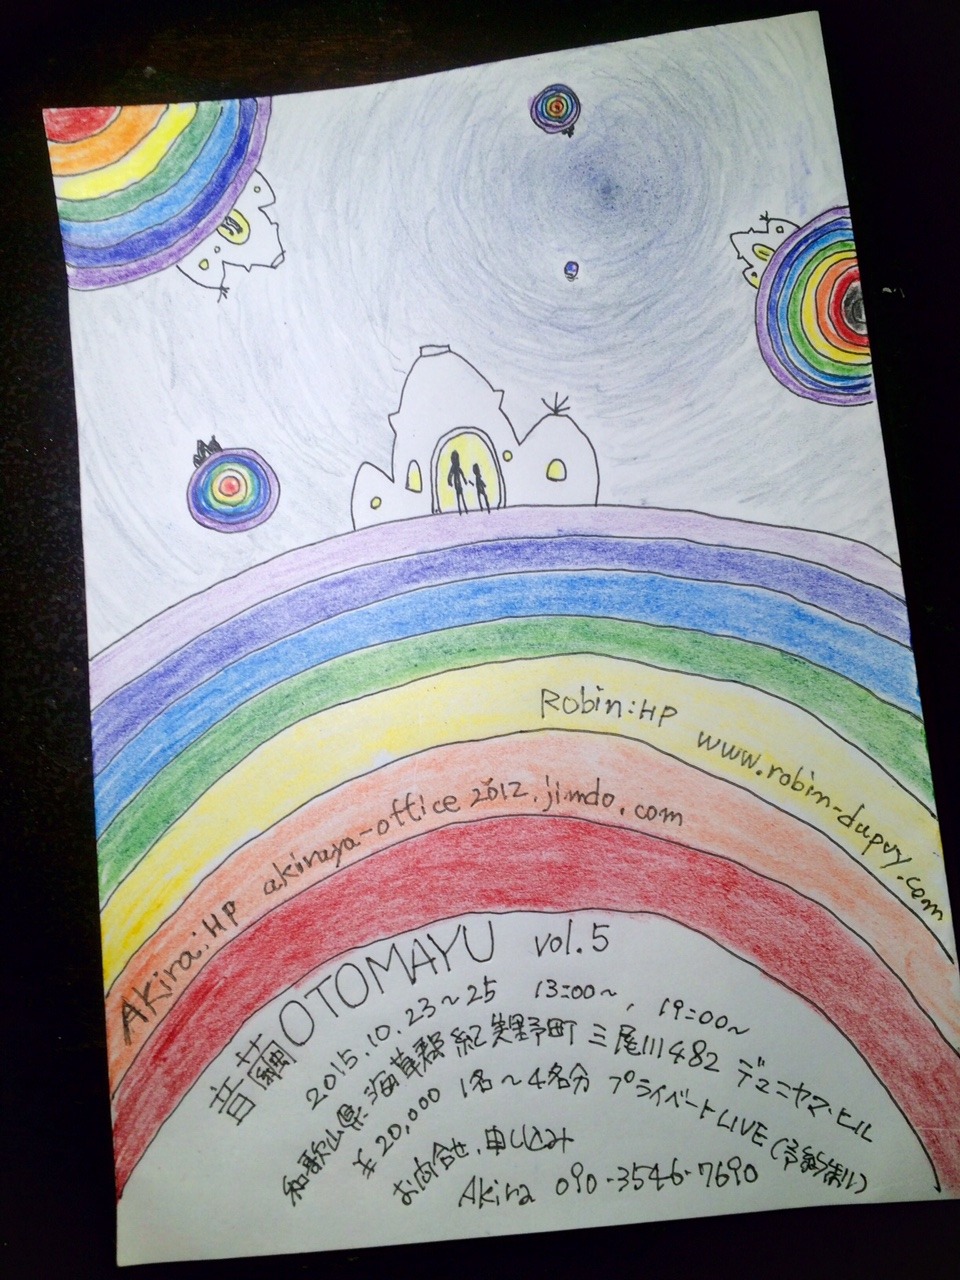 Robin:HP www.robin-dupuy.com
Akira:HP akiraya-office2012.jimdo.com
音繭 OTOMAYU vol.5
2015.10.23〜25 13:00〜, 19:00〜
和歌山県海草郡紀美野町三尾川482 デュニヤマ・ヒル
¥20,000 1名〜4名分 プライベートLIVE (予約制)
お問合せ、申し込み
Akira 090-3546-7690